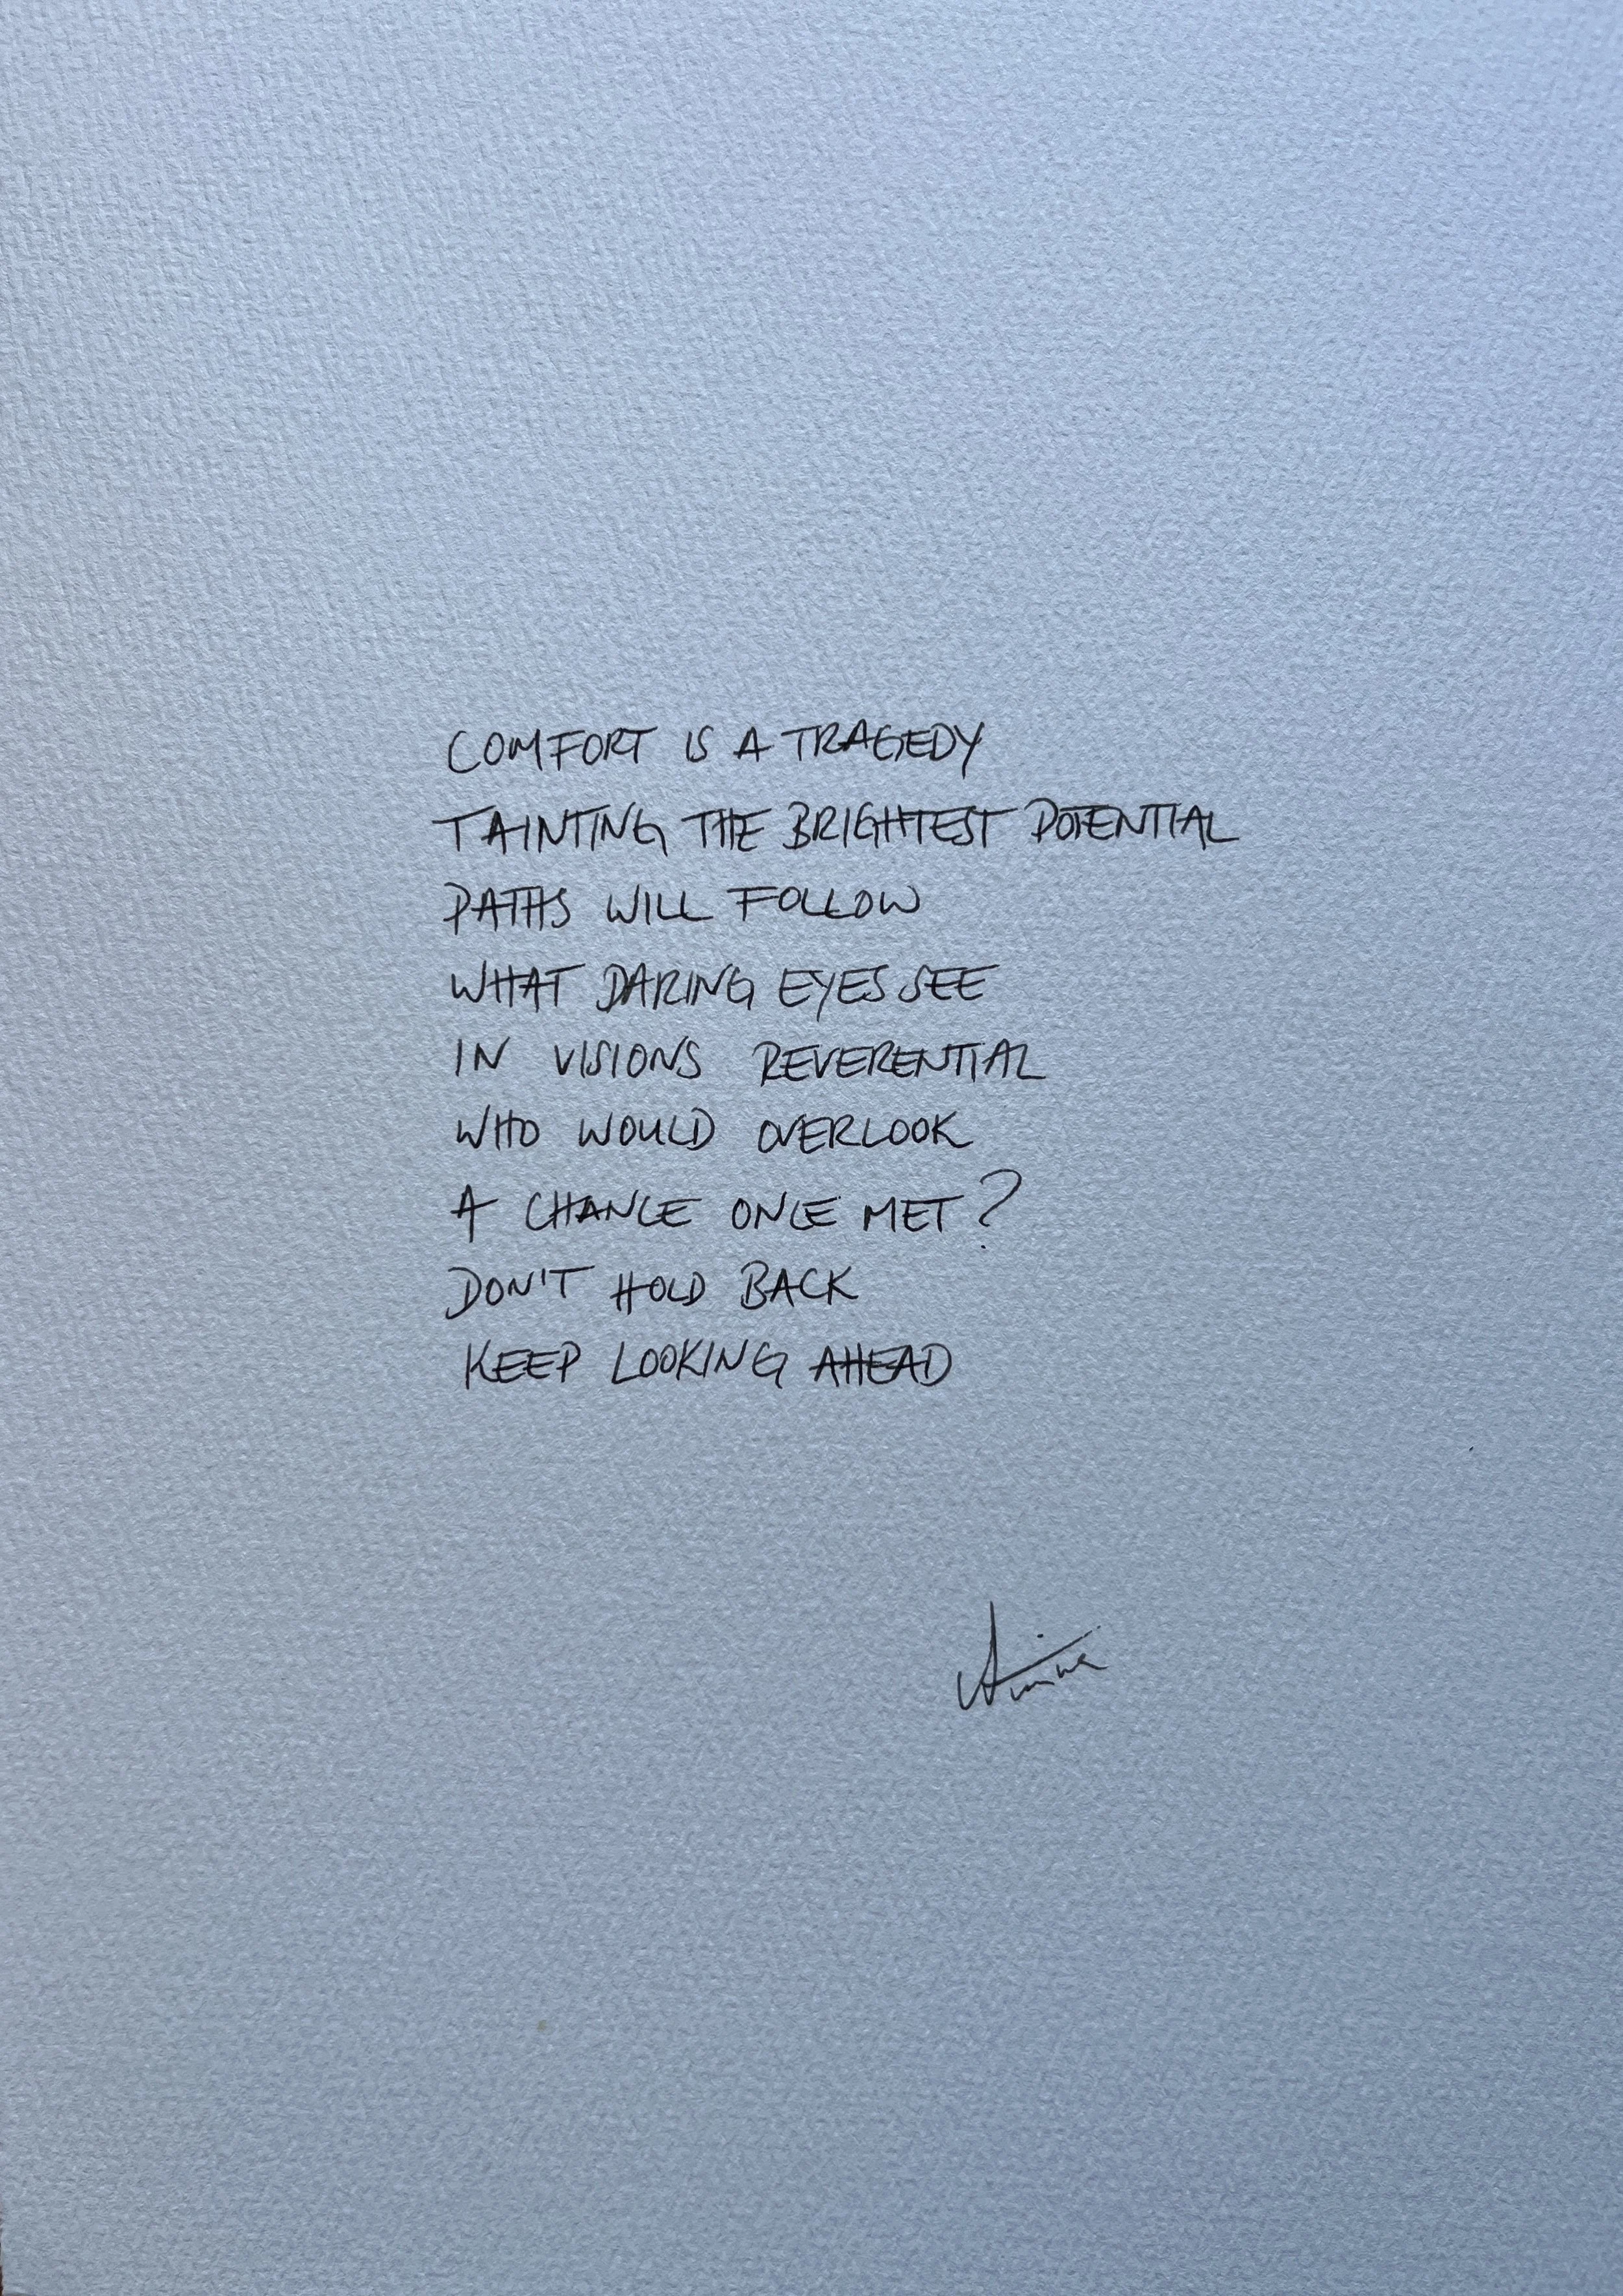 COMFORT IS A TRAGEDY
TAINTING THE BRIGHTEST POTENTIAL
PATHS WILL FOLLOW
WHAT DARING EYES SEE
IN VISIONS REVERENTIAL
WHO WOULD OVERLOOK
A CHANCE ONCE MET?
DON'T HOLD BACK
KEEP LOOKING AHEAD